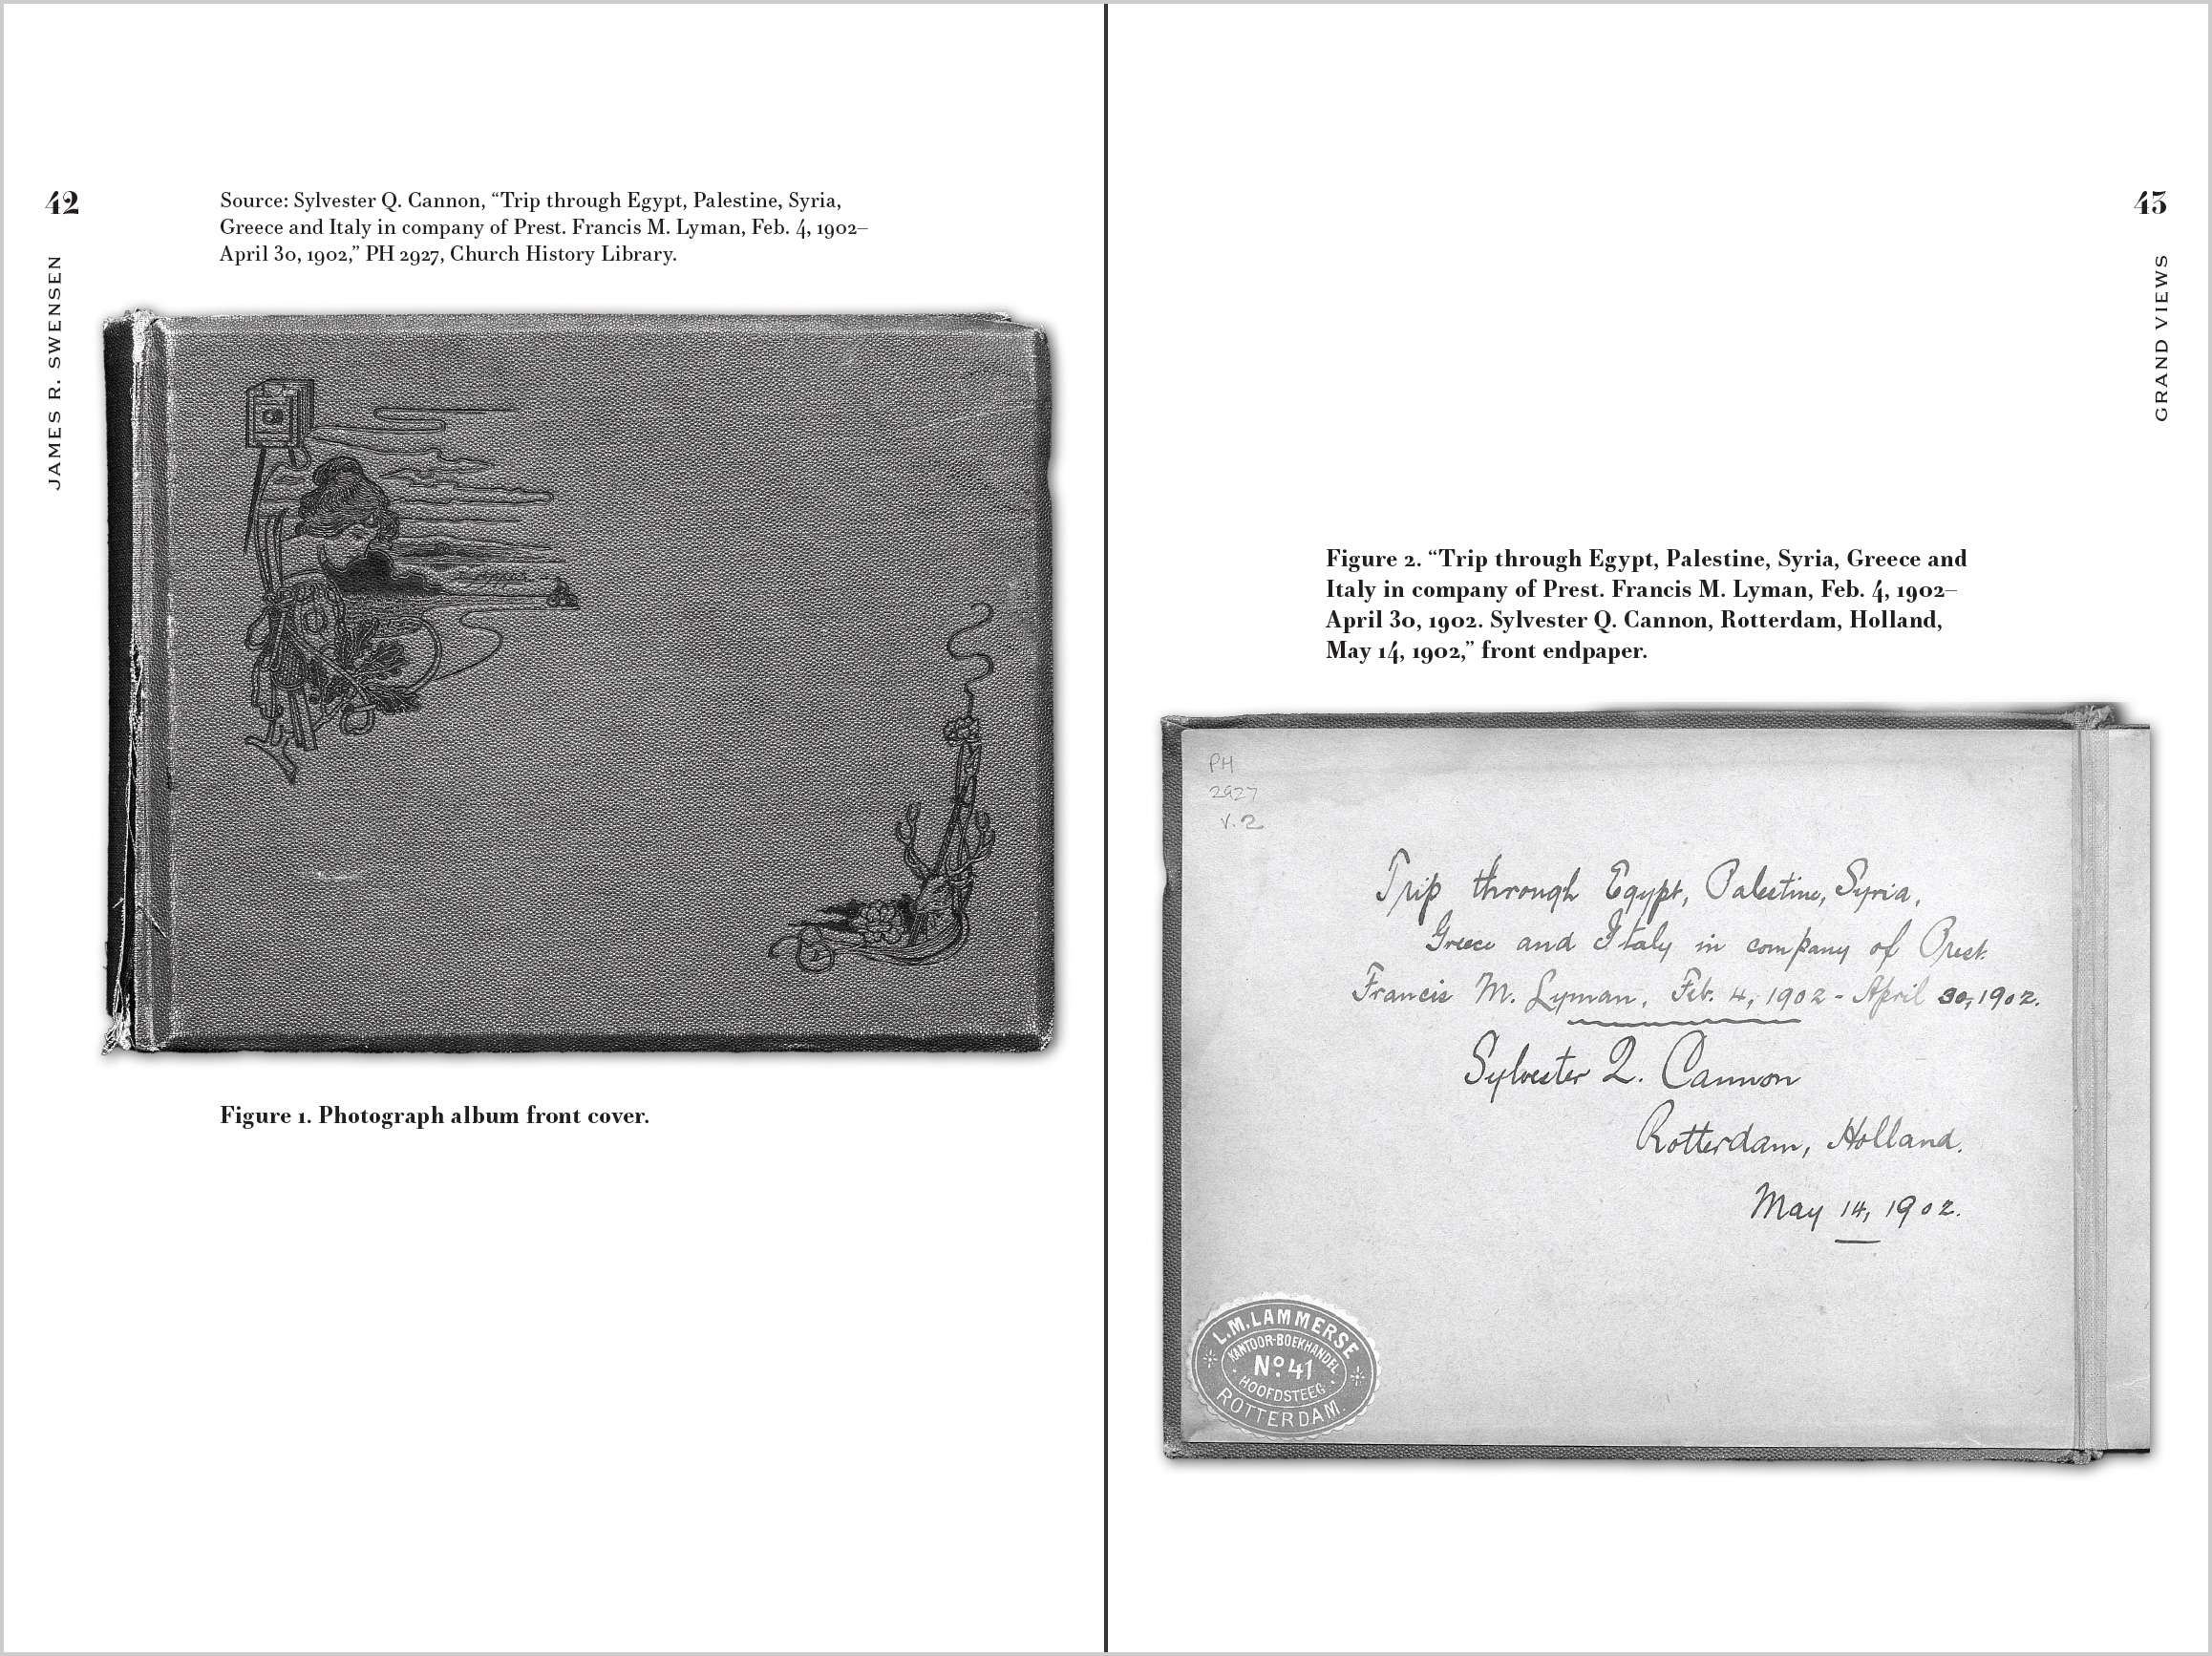 42
JAMES R. SWENSEN
Source: Sylvester Q. Cannon, “Trip through Egypt, Palestine, Syria,
Greece and Italy in company of Prest. Francis M. Lyman, Feb. 4, 1902–
April 30, 1902,” PH 2927, Church History Library.
Figure 1. Photograph album front cover.
43
GRAND VIEWS
Figure 2. “Trip through Egypt, Palestine, Syria, Greece and
Italy in company of Prest. Francis M. Lyman, Feb. 4, 1902–
April 30, 1902. Sylvester Q. Cannon, Rotterdam, Holland,
May 14, 1902,” front endpaper.
PH
2927
v. 2
Trip through Egypt, Palestine, Syria,
Greece and Italy in company of Prest.
Francis M. Lyman, Feb. 4, 1902 - April 30, 1902.
Sylvester Q. Cannon
Rotterdam, Holland.
May 14, 1902.
L.M. LAMMERSE
KANTOOR-BOEKHANDEL
No. 41
HOOFDSTEEG
ROTTERDAM.